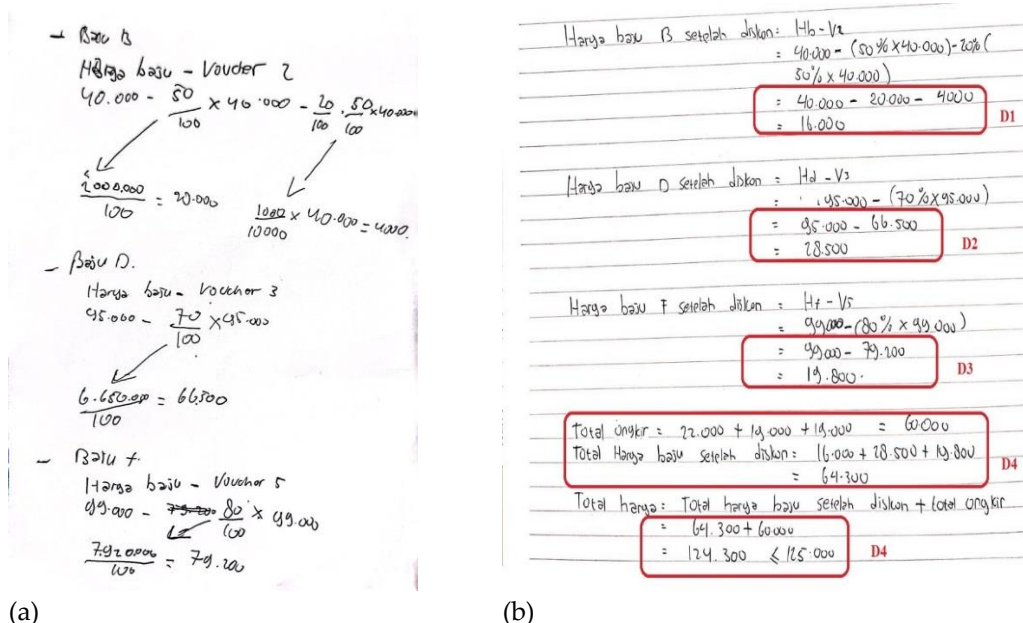 → Baju B
Harga baju - Voucher 2
40.000 - 50/100 × 40.000 - 20/100 . 50/100 × 40.000
2000.000/100 = 20.000
1000/10000 × 40.000 = 4000.
- Baju D.
Harga baju - Voucher 3
95.000 - 70/100 × 95.000
6.650.000/100 = 66.500
- Baju F.
Harga baju - Voucher 5
99.000 - 80/100 × 99.000
7.920.000/100 = 79.200
(a)
Harga baju B setelah diskon = Hb - V2
= 40.000 - (50% × 40.000) - 20% (
50% × 40.000)
= 40.000 - 20.000 - 4000
= 16.000
D1
Harga baju D setelah diskon = Hd - V3
= 95.000 - (70% × 95.000)
= 95.000 - 66.500
= 28.500
D2
Harga baju F setelah diskon = Hf - V5
= 99.000 - (80% × 99.000)
= 99.000 - 79.200
= 19.800.
D3
Total ongkir = 22.000 + 19.000 + 19.000 = 60.000
Total Harga baju setelah diskon = 16.000 + 28.500 + 19.800
= 64.300
D4
Total harga = Total harga baju setelah diskon + total ongkir
= 64.300 + 60000
= 124.300 ≤ 125.000
D4
(b)